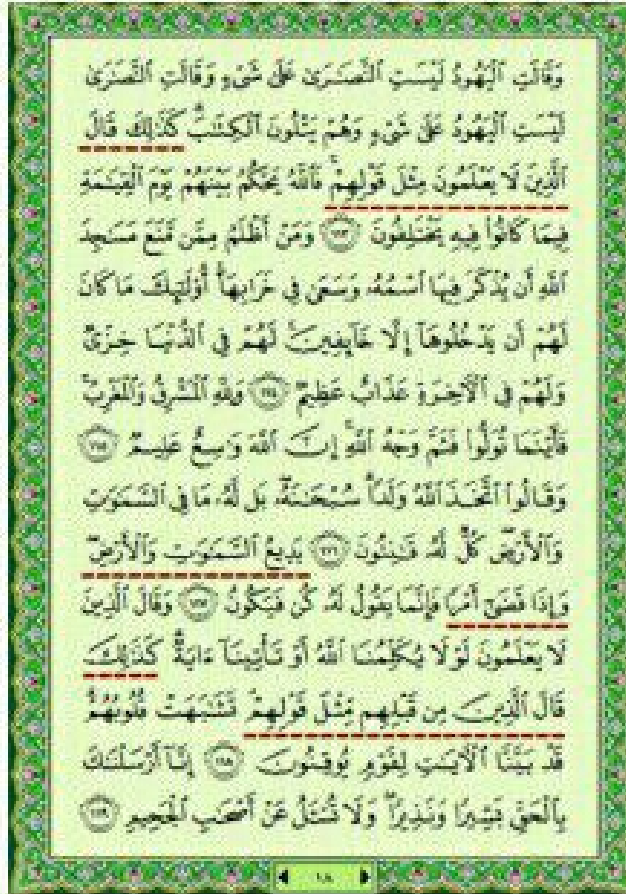 وَقَالَتِ ٱلۡيَهُودُ لَيۡسَتِ ٱلنَّصَٰرَىٰ عَلَىٰ شَىۡءٍ وَقَالَتِ ٱلنَّصَٰرَىٰ
لَيۡسَتِ ٱلۡيَهُودُ عَلَىٰ شَىۡءٍ وَهُمۡ يَتۡلُونَ ٱلۡكِتَٰبَۗ كَذَٰلِكَ قَالَ
ٱلَّذِينَ لَا يَعۡلَمُونَ مِثۡلَ قَوۡلِهِمۡۚ فَٱللَّهُ يَحۡكُمُ بَيۡنَهُمۡ يَوۡمَ ٱلۡقِيَٰمَةِ
فِيمَا كَانُواْ فِيهِ يَخۡتَلِفُونَ ١١٣ وَمَنۡ أَظۡلَمُ مِمَّن مَّنَعَ مَسَٰجِدَ
ٱللَّهِ أَن يُذۡكَرَ فِيهَا ٱسۡمُهُۥ وَسَعَىٰ فِي خَرَابِهَآۚ أُوْلَٰٓئِكَ مَا كَانَ
لَهُمۡ أَن يَدۡخُلُوهَآ إِلَّا خَآئِفِينَۚ لَهُمۡ فِي ٱلدُّنۡيَا خِزۡيٞ
وَلَهُمۡ فِي ٱلۡأٓخِرَةِ عَذَابٌ عَظِيمٞ ١١٤ وَلِلَّهِ ٱلۡمَشۡرِقُ وَٱلۡمَغۡرِبُۚ
فَأَيۡنَمَا تُوَلُّواْ فَثَمَّ وَجۡهُ ٱللَّهِۚ إِنَّ ٱللَّهَ وَٰسِعٌ عَلِيمٞ ١١٥
وَقَالُواْ ٱتَّخَذَ ٱللَّهُ وَلَدٗاۗ سُبۡحَٰنَهُۥۖ بَل لَّهُۥ مَا فِي ٱلسَّمَٰوَٰتِ
وَٱلۡأَرۡضِۖ كُلّٞ لَّهُۥ قَٰنِتُونَ ١١٦ بَدِيعُ ٱلسَّمَٰوَٰتِ وَٱلۡأَرۡضِۖ
وَإِذَا قَضَىٰٓ أَمۡرٗا فَإِنَّمَا يَقُولُ لَهُۥ كُن فَيَكُونُ ١١٧ وَقَالَ ٱلَّذِينَ
لَا يَعۡلَمُونَ لَوۡلَا يُكَلِّمُنَا ٱللَّهُ أَوۡ تَأۡتِينَآ ءَايَةٞۗ كَذَٰلِكَ
قَالَ ٱلَّذِينَ مِن قَبۡلِهِم مِّثۡلَ قَوۡلِهِمۡۘ تَشَٰبَهَتۡ قُلُوبُهُمۡۗ
قَدۡ بَيَّنَّا ٱلۡأٓيَٰتِ لِقَوۡمٖ يُوقِنُونَ ١١٨ إِنَّآ أَرۡسَلۡنَٰكَ
بِٱلۡحَقِّ بَشِيرٗا وَنَذِيرٗاۖ وَلَا تُسۡـَٔلُ عَنۡ أَصۡحَٰبِ ٱلۡجَحِيمِ ١١٩
١٨